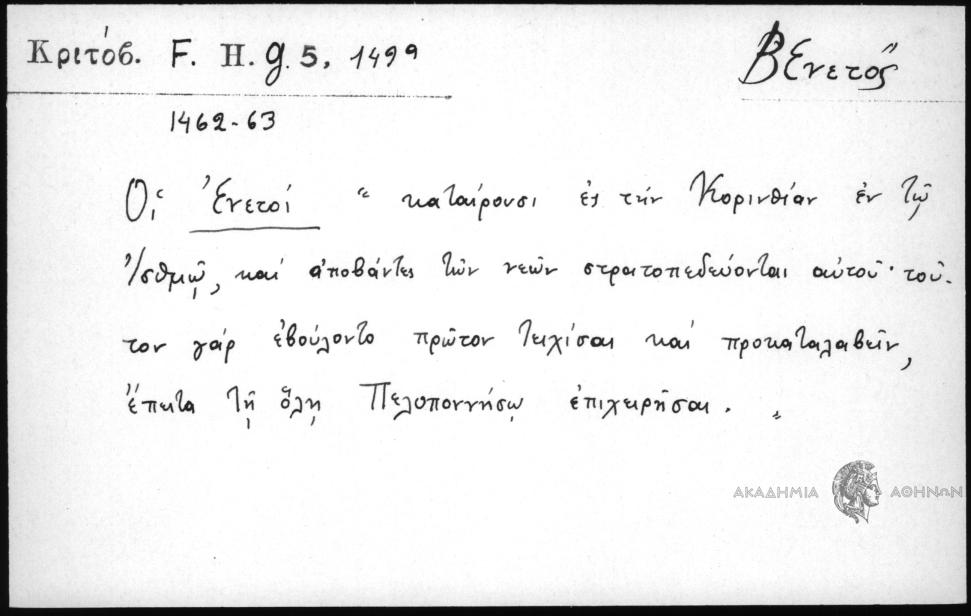 Κριτόβ. F. H. g. 5, 149⁹
Βενετός
1462-63
Οἱ Ἐνετοί " καταίρουσι ἐς τήν Κορινθίαν ἐν τῷ
Ἰσθμῷ, καί ἀποβάντες τῶν νεῶν στρατοπεδεύονται αὐτοῦ· τοῦ-
τον γάρ ἐβούλοντο πρῶτον τειχίσαι καί προκαταλαβεῖν,
ἔπειτα τῇ ὅλῃ Πελοποννήσῳ ἐπιχειρῆσαι. "
ΑΚΑΔΗΜΙΑ ΑΘΗΝΩΝ